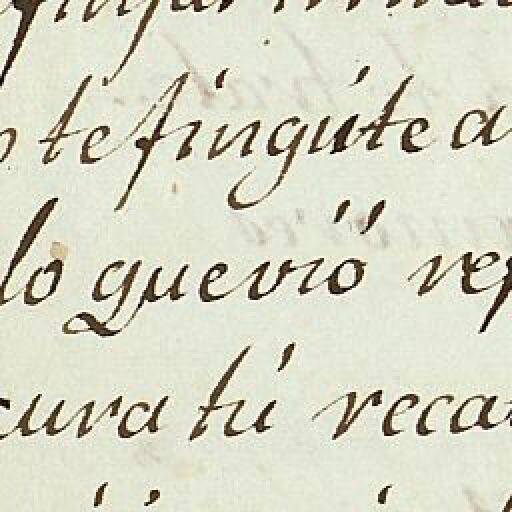 te fingúte a
lo que vió rep
cura tú reca